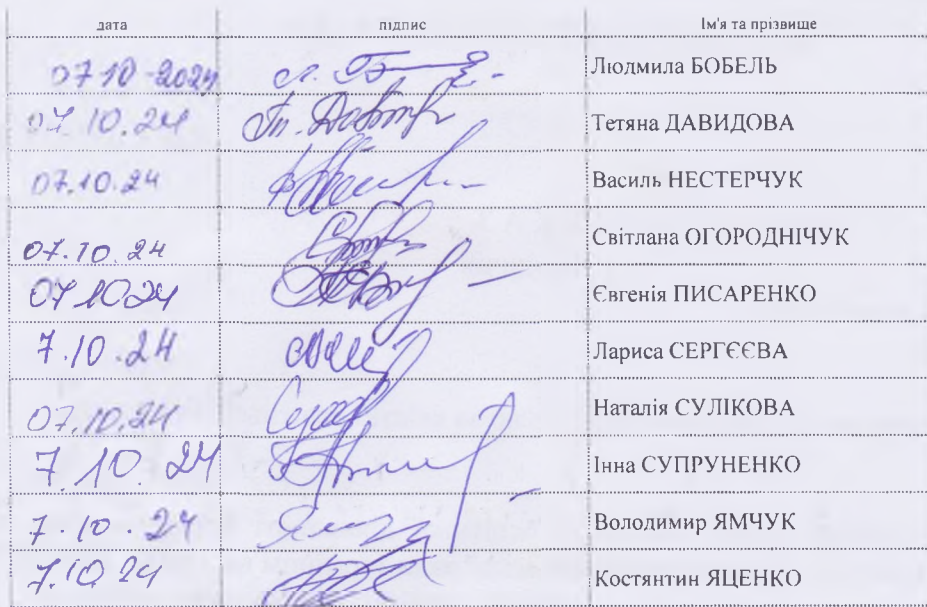 дата підпис Ім'я та прізвище
07 10 -2024 Людмила БОБЕЛЬ
07.10.24 Тетяна ДАВИДОВА
07.10.24 Василь НЕСТЕРЧУК
07.10.24 Світлана ОГОРОДНІЧУК
07 10 24 Євгенія ПИСАРЕНКО
7.10.24 Лариса СЕРГЄЄВА
07.10.24 Наталія СУЛІКОВА
7.10.24 Інна СУПРУНЕНКО
7.10.24 Володимир ЯМЧУК
7.10 24 Костянтин ЯЦЕНКО